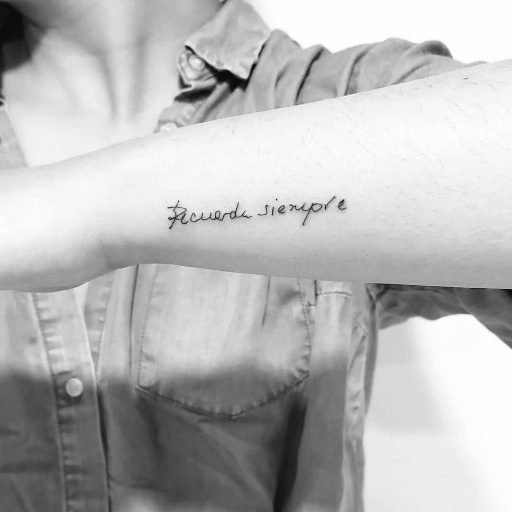 Recuerda siempre